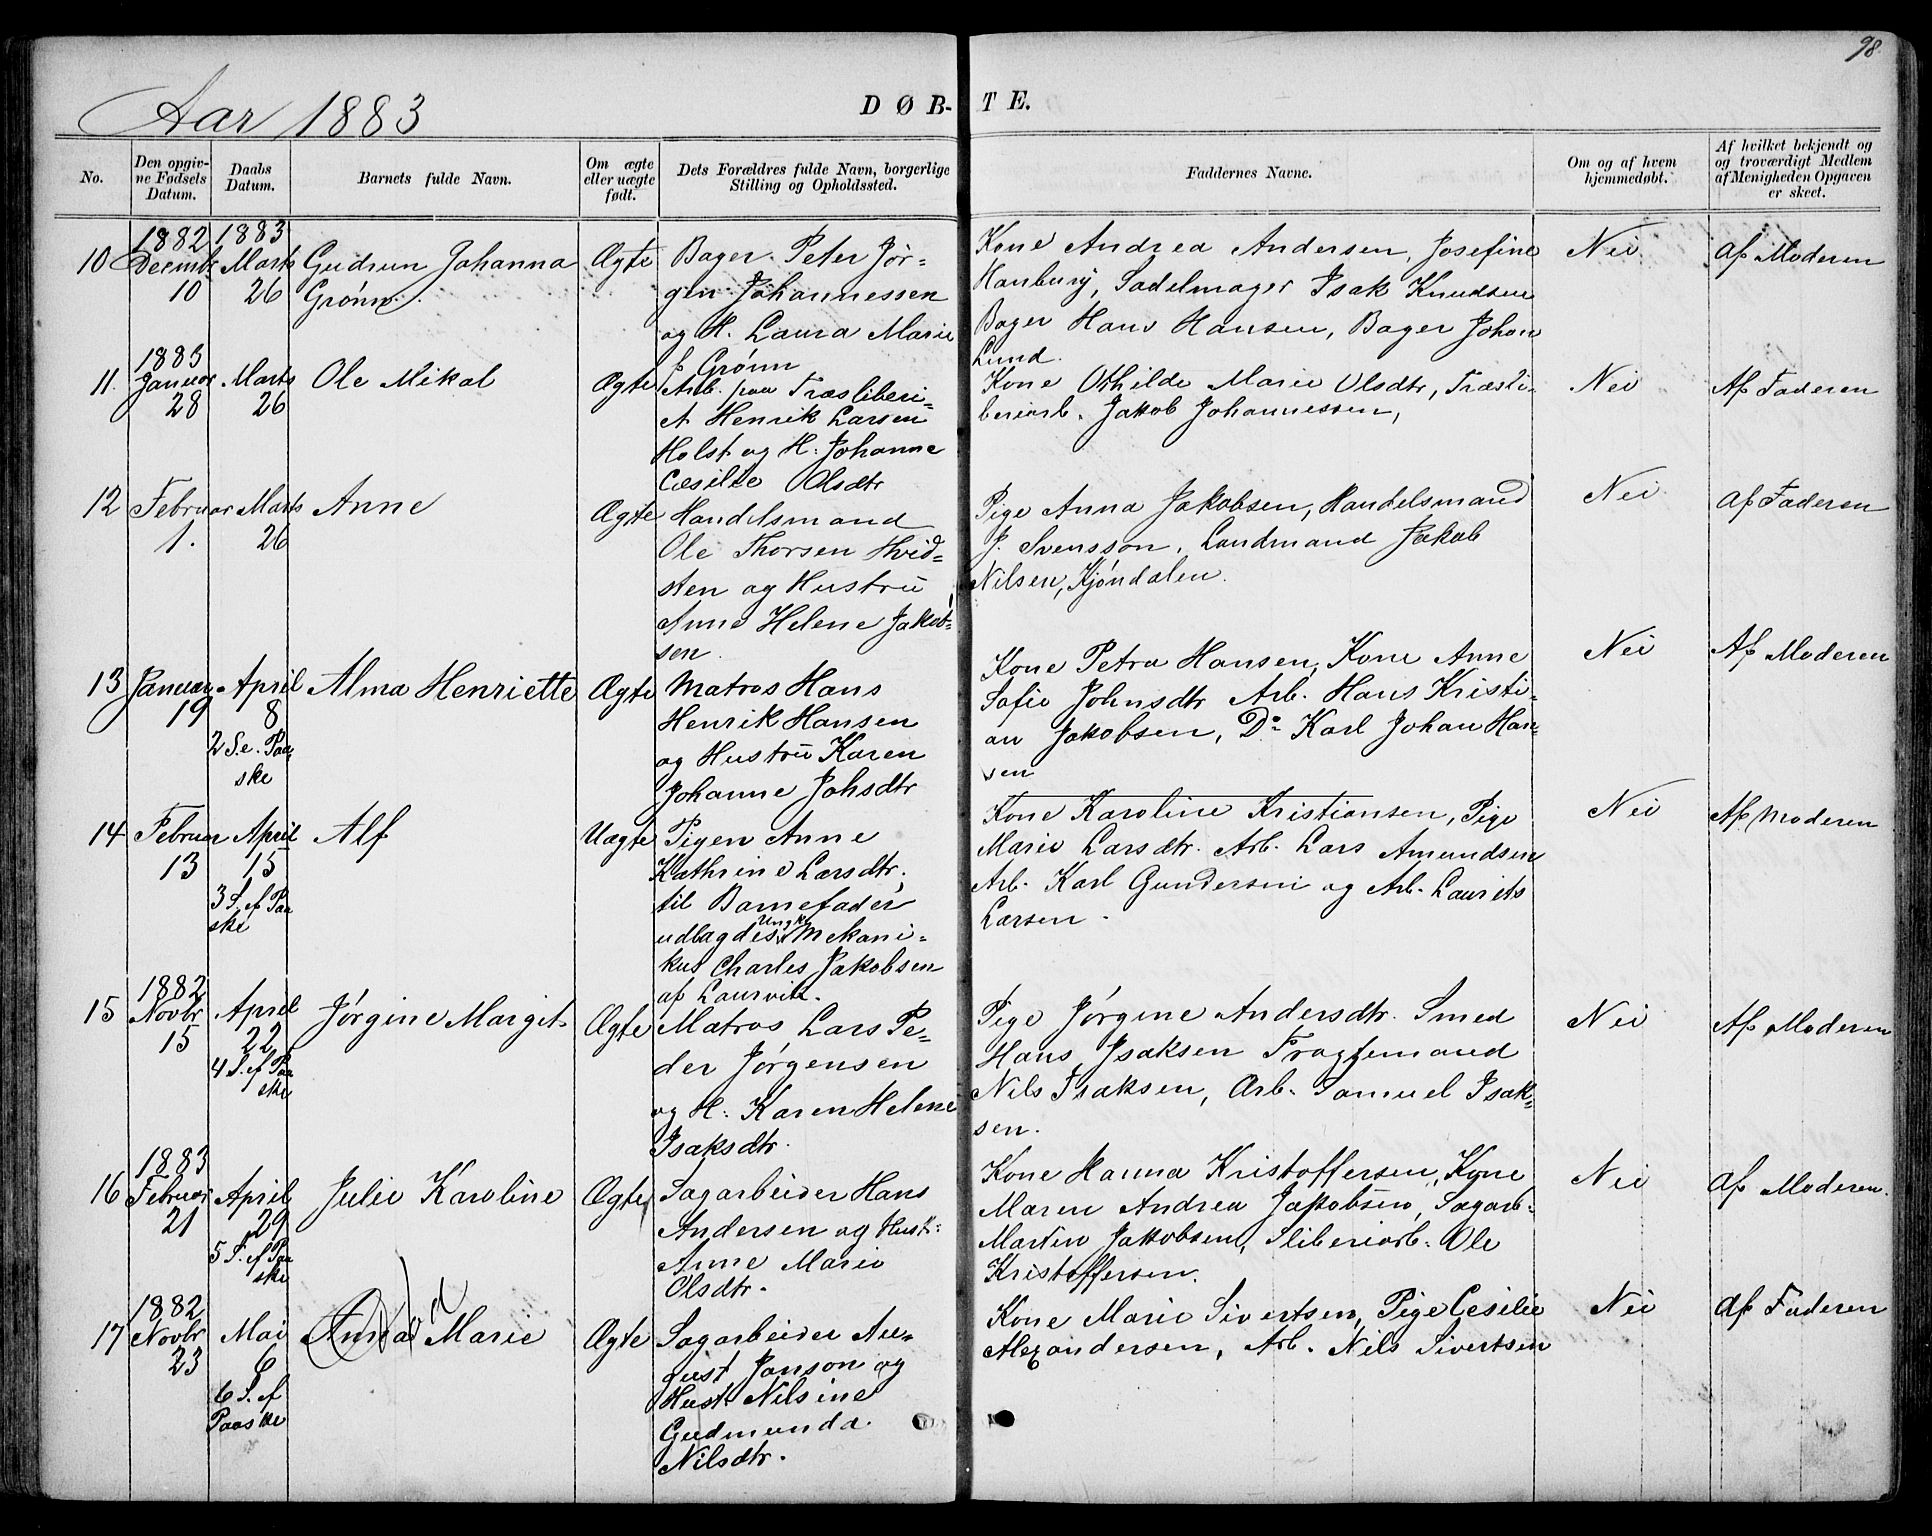 98.
Aar 1883
DØB-TE.
No.
Den opgiv-
ne Fødsels
Datum.
Daabs
Datum.
Barnets fulde Navn.
Om ægte
eller uægte
født.
Dets Forældres fulde Navn, borgerlige
Stilling og Opholdssted.
Faddernes Navne.
Om og af hvem
hjemmedøbt.
Af hvilket bekjendt og
og troværdigt Medlem
af Menigheden Opgaven
er skeet.
10
1882
Decmbr
10
1883
Marts
26
Gudrun Johanna
Grønn.
Ægte
Bager Peter Jør-
gen Johannessen
og H. Laura Marie
f. Grønn
Kone Andrea Andersen, Josefine
Hanburg, Sadelmager Isak Knudsen
Bager Hans Hansen, Bager Johan
Lund.
Nei
Af Moderen
11.
1883
Januar
28
Marts
26
Ole Mikal
Ægte
Arb. paa Træsliberi-
et Henrik Larsen
Holst og H. Johanne
Cæsilie Olsdtr
Kone Othilde Marie Olsdtr, Træsli-
beriarb. Jakob Johannessen,
Nei
Af Faderen
12
Februar
1.
Marts
26
Anne
Ægte
Handelsmand
Ole Thorsen Hvid-
sten og Hustru
Anne Helene Jakob-
sen.
Pige Anna Jakobsen, Handelsmand
J. Svensson, Landmand Jakob
Nilsen, Kjøndalen.
Nei
Af Faderen
13
Januar
19
April
8
2 S. e. Paa-
ske
Alma Henriette
Ægte
Matros Hans
Henrik Hansen
og Hustru Karen
Johanne Johsdtr
Kone Petra Hansen, Kone Anne
Sofie Johnsdtr Arb. Hans Kristi-
an Jakobsen, Do Karl Johan Han-
sen
Nei
Af Moderen
14
Februar
13
April
15
3 S. ef Paa
ske
Alf
Uægte
Pigen Anne
Kathrine Larsdtr,
til Barnefader
udlagdes Ungk. Mekani-
kus Charles Jakobsen
af Laurvik.
Kone Karoline Kristiansen, Pige
Marie Larsdtr. Arb. Lars Amundsen
Arb. Karl Gundersen og Arb. Laurits
Larsen.
Nei
Af Moderen
15
1882
Novbr
15
April
22
4 S. ef Paa
ske
Jørgine Margit
Ægte
Matros Lars Pe-
der Jørgensen
og H. Karen Helene
Isaksdtr.
Pige Jørgine Andersdtr. Smed
Hans Isaksen Fragtemand
Nils Isaksen, Arb. Samuel Isak-
sen.
Nei
Af Moderen
16
1883
Februar
21
April
29
5 S. ef Paa
ske
Julie Karoline
Ægte
Sagarbeider Hans
Andersen og Hust.
Anne Marie
Olsdtr.
Kone Hanna Kristoffersen, Kone
Maren Andrea Jakobsen, Sagarb-
Martin Jakobsen, Sliberiarb. Ole
Kristoffersen.
Nei
Af Moderen.
17
1882
Novbr
23
Mai
6
6 S. ef
Paaske
Marie
Ægte
Sagarbeider Au-
gust Janson og
Hust. Nilsine
Gudmunda
Nilsdtr.
Kone Marie Sivertsen, Pige Cesilie
Alexandersen, Arb. Nils Sivertsen
Nei
Af Faderen